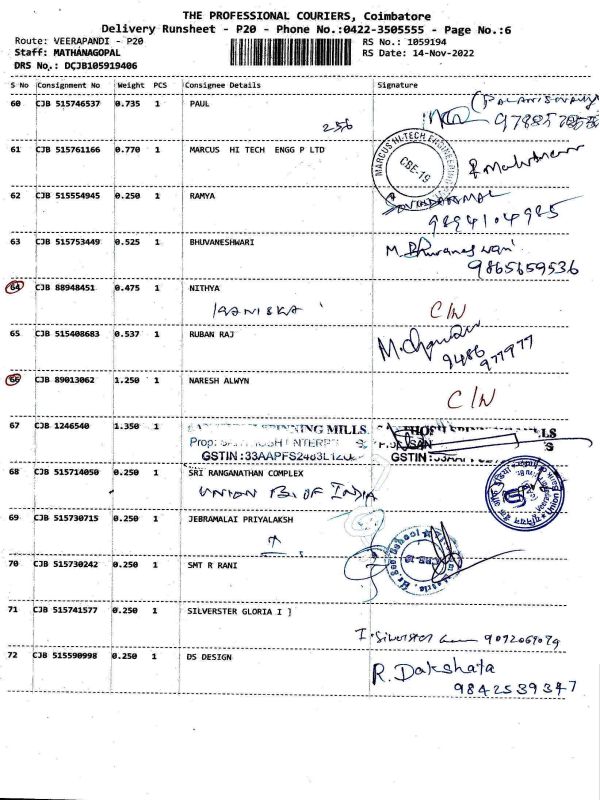 THE PROFESSIONAL COURIERS, Coimbatore
Delivery Runsheet - P20 - Phone No.:0422-3505555 - Page No.:6
Route: VEERAPANDI - P20
RS No.: 1059194
Staff: MATHANAGOPAL
RS Date: 14-Nov-2022
DRS No.: DCJB105919406
S No Consignment No Weight PCS Consignee Details Signature
60 CJB 515746537 0.735 1 PAUL
256
61 CJB 515761166 0.770 1 MARCUS HI TECH ENGG P LTD
MARCUS HI-TECH ENGINEERING
CBE-19
62 CJB 515554945 0.250 1 RAMYA
9894104985
63 CJB 515753449 0.525 1 BHUVANESHWARI
M. Bhuvaneswari
9865659536
64 CJB 88948451 0.475 1 NITHYA
C/N
65 CJB 515408683 0.537 1 RUBAN RAJ
9486 977977
66 CJB 89013062 1.250 1 NARESH ALWYN
C/N
67 CJB 1246540 1.350 1
SPINNING MILLS
Prop:
GSTIN :33AAPFS2483L1Z
GSTIN :33AA
68 CJB 515714050 0.250 1 SRI RANGANATHAN COMPLEX
UNION BK OF INDIA
69 CJB 515730715 0.250 1 JEBRAMALAI PRIYALAKSH
70 CJB 515730242 0.250 1 SMT R RANI
71 CJB 515741577 0.250 1 SILVERSTER GLORIA I ]
I. Silverster
72 CJB 515590998 0.250 1 DS DESIGN
R. Dakshata
9842539347